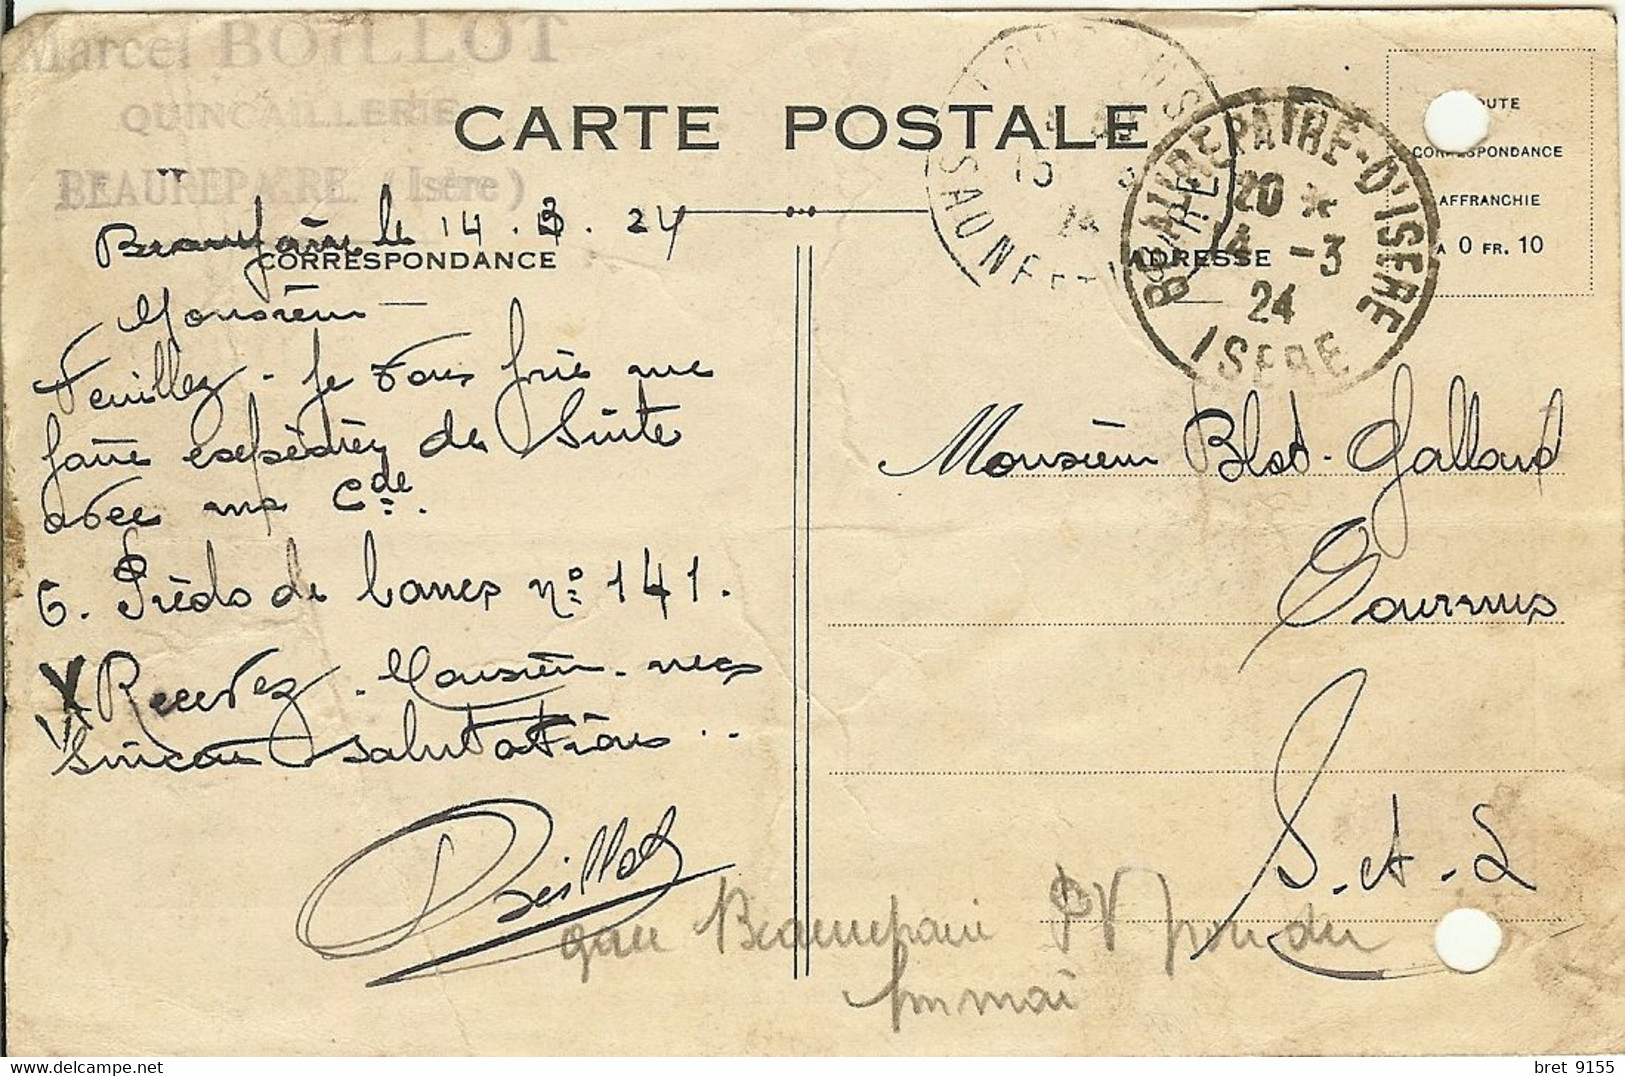 Marcel BOILLOT
QUINCAILLERIE
BEAUREPAIRE (Isère)
CARTE POSTALE
Beaurepaire le 14.3.24
CORRESPONDANCE
Monsieur
Veuillez - je vous prie me
faire expédier de suite
avec ma Cde.
6. Pieds de bancs n° 141.
X Recevez - Monsieur - mes
sincères salutations ..
Boillot
ADRESSE
BEAUREPAIRE-D'ISERE
20 *
14 -3
24
ISERE
SAONE
15
24
TOUTE
CORRESPONDANCE
AFFRANCHIE
A 0 FR. 10
Monsieur Blot-Galland
Tournus
S.-et-L
gare Beaurepaire PV
bret 9155